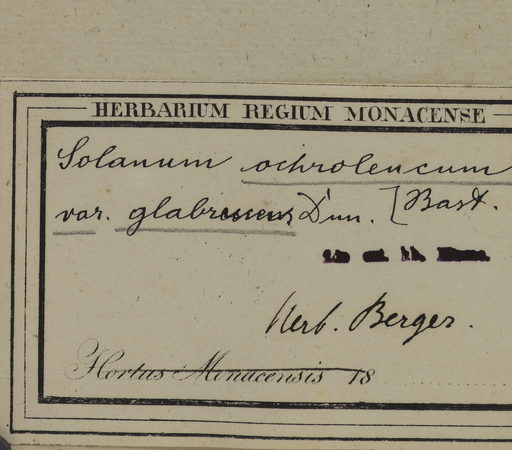 HERBARIUM REGIUM MONACENSE
Solanum ochroleucum
var. glabrescens Dun. [Bast.
Herb. Berger.
Hortus Monacensis 18